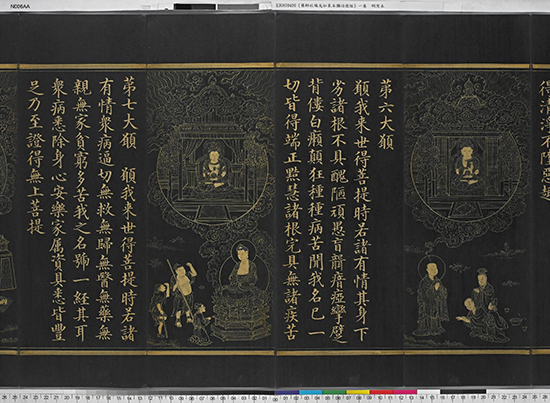 N006AA
得清淨不墮惡趣
苐六大願
願我來世得菩提時若諸有情其身下
劣諸根不具醜陋頑愚盲聾瘖瘂攣躄
背僂白癩顛狂種種病苦聞我名已一
切皆得端正黠慧諸根完具無諸疾苦
苐七大願 願我來世得菩提時若諸
有情衆病逼切無救無歸無醫無藥無
親無家貧窮多苦我之名號一經其耳
衆病悉除身心安樂家属資具悉皆豐
足乃至證得無上菩提